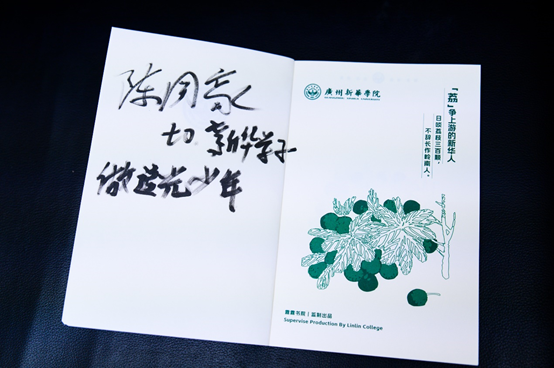 新华学子
做追光少年
廣州新華學院
GUANGZHOU XINHUA UNIVERSITY
「荔」争上游的新华人
日啖荔枝三百颗，
不辞长作岭南人。
书院｜监制出品
Supervise Production By Linlin College